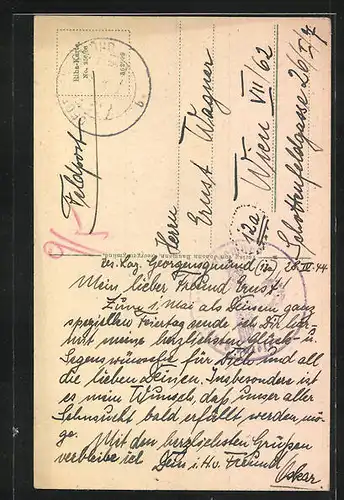 Riha-Karte
Feldpost
9/5
Herrn
Ernst Wagner
(12a) Wien VII/62
Schottenfeldgasse 26/I/7
Res. Laz. Georgensgmünd (13a) 28.IV.44
Mein lieber Freund Ernst!
Zum 1. Mai als Deinem ganz
speziellen Feiertag sende ich Dir hier-
mit meine herzlichsten Glück- u.
Segenswünsche für Dich und all
die lieben Deinen. Insbesondere ist
es mein Wunsch, daß unser aller
Sehnsucht bald erfüllt werden mö-
ge.
Mit den herzlichsten Grüßen
verbleibe ich Dein i. H. v. Freund
Oskar